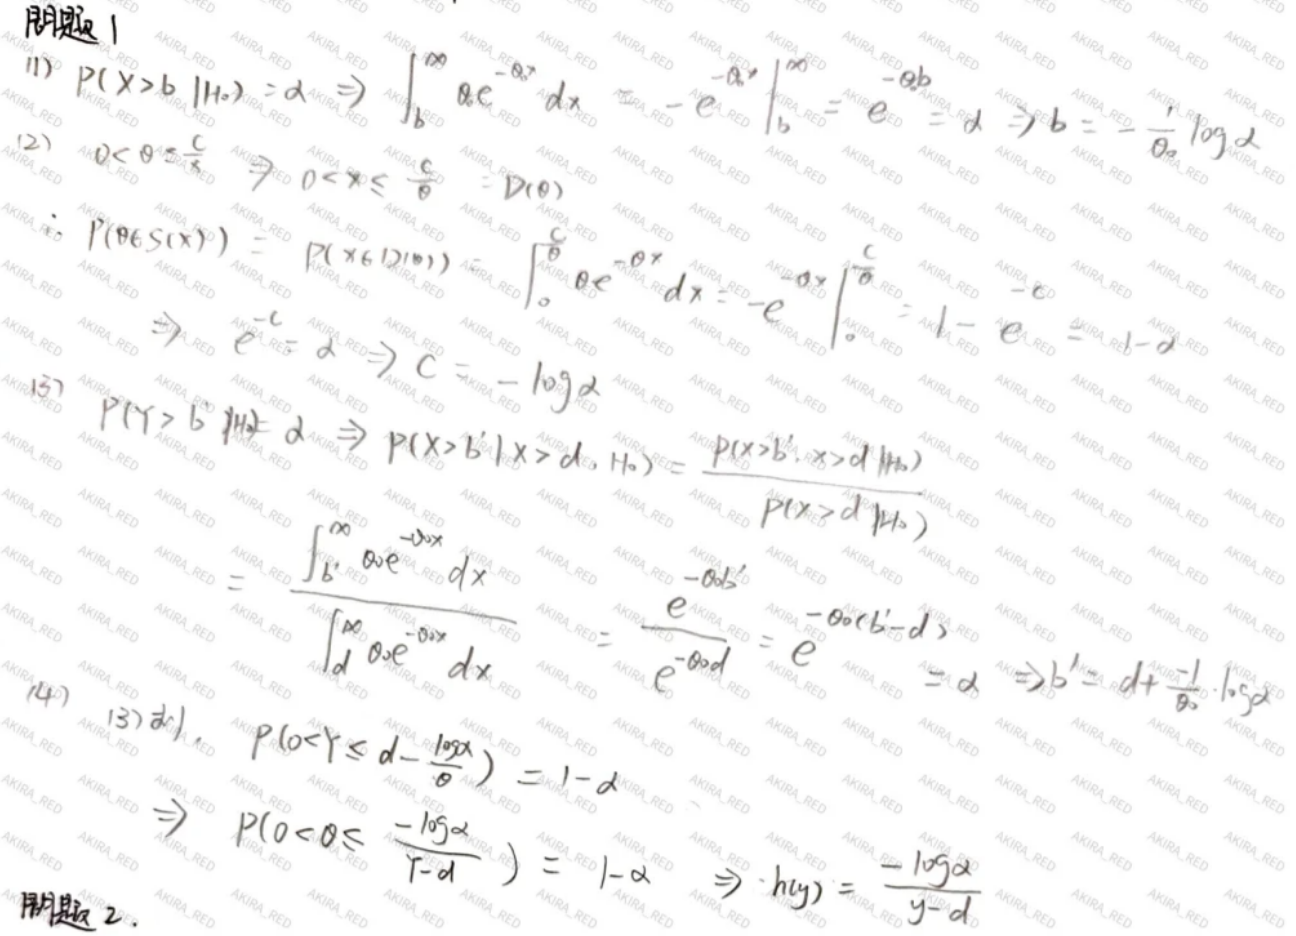 問題 1
(1) P(X>b |H₀) = α ⇒ ∫_b^∞ θ₀e^{-θ₀x} dx = -e^{-θ₀x} |_b^∞ = e^{-θ₀b} = α ⇒ b = -\frac{1}{θ₀} log α
(2) 0<θ≤\frac{c}{x} ⇒ 0<x≤\frac{c}{θ} = D(θ)
∴ P(θ∈S(X)) = P(x∈D(θ)) = ∫_0^{\frac{c}{θ}} θe^{-θx} dx = -e^{-θx} |_0^{\frac{c}{θ}} = 1 - e^{-c} = 1-α
⇒ e^{-c} = α ⇒ c = -log α
(3) P(Y>b' |H₀) = α ⇒ P(X>b' | X>d, H₀) = \frac{P(X>b', X>d |H₀)}{P(X>d |H₀)}
= \frac{∫_{b'}^∞ θ₀e^{-θ₀x} dx}{∫_d^∞ θ₀e^{-θ₀x} dx} = \frac{e^{-θ₀b'}}{e^{-θ₀d}} = e^{-θ₀(b'-d)} = α ⇒ b' = d + \frac{-1}{θ₀} · log α
(4) (3)より, P(0<Y≤ d - \frac{log α}{θ}) = 1-α
⇒ P(0<θ≤ \frac{-log α}{Y-d}) = 1-α ⇒ h(y) = \frac{-log α}{y-d}
問題 2.
AKIRA_RED